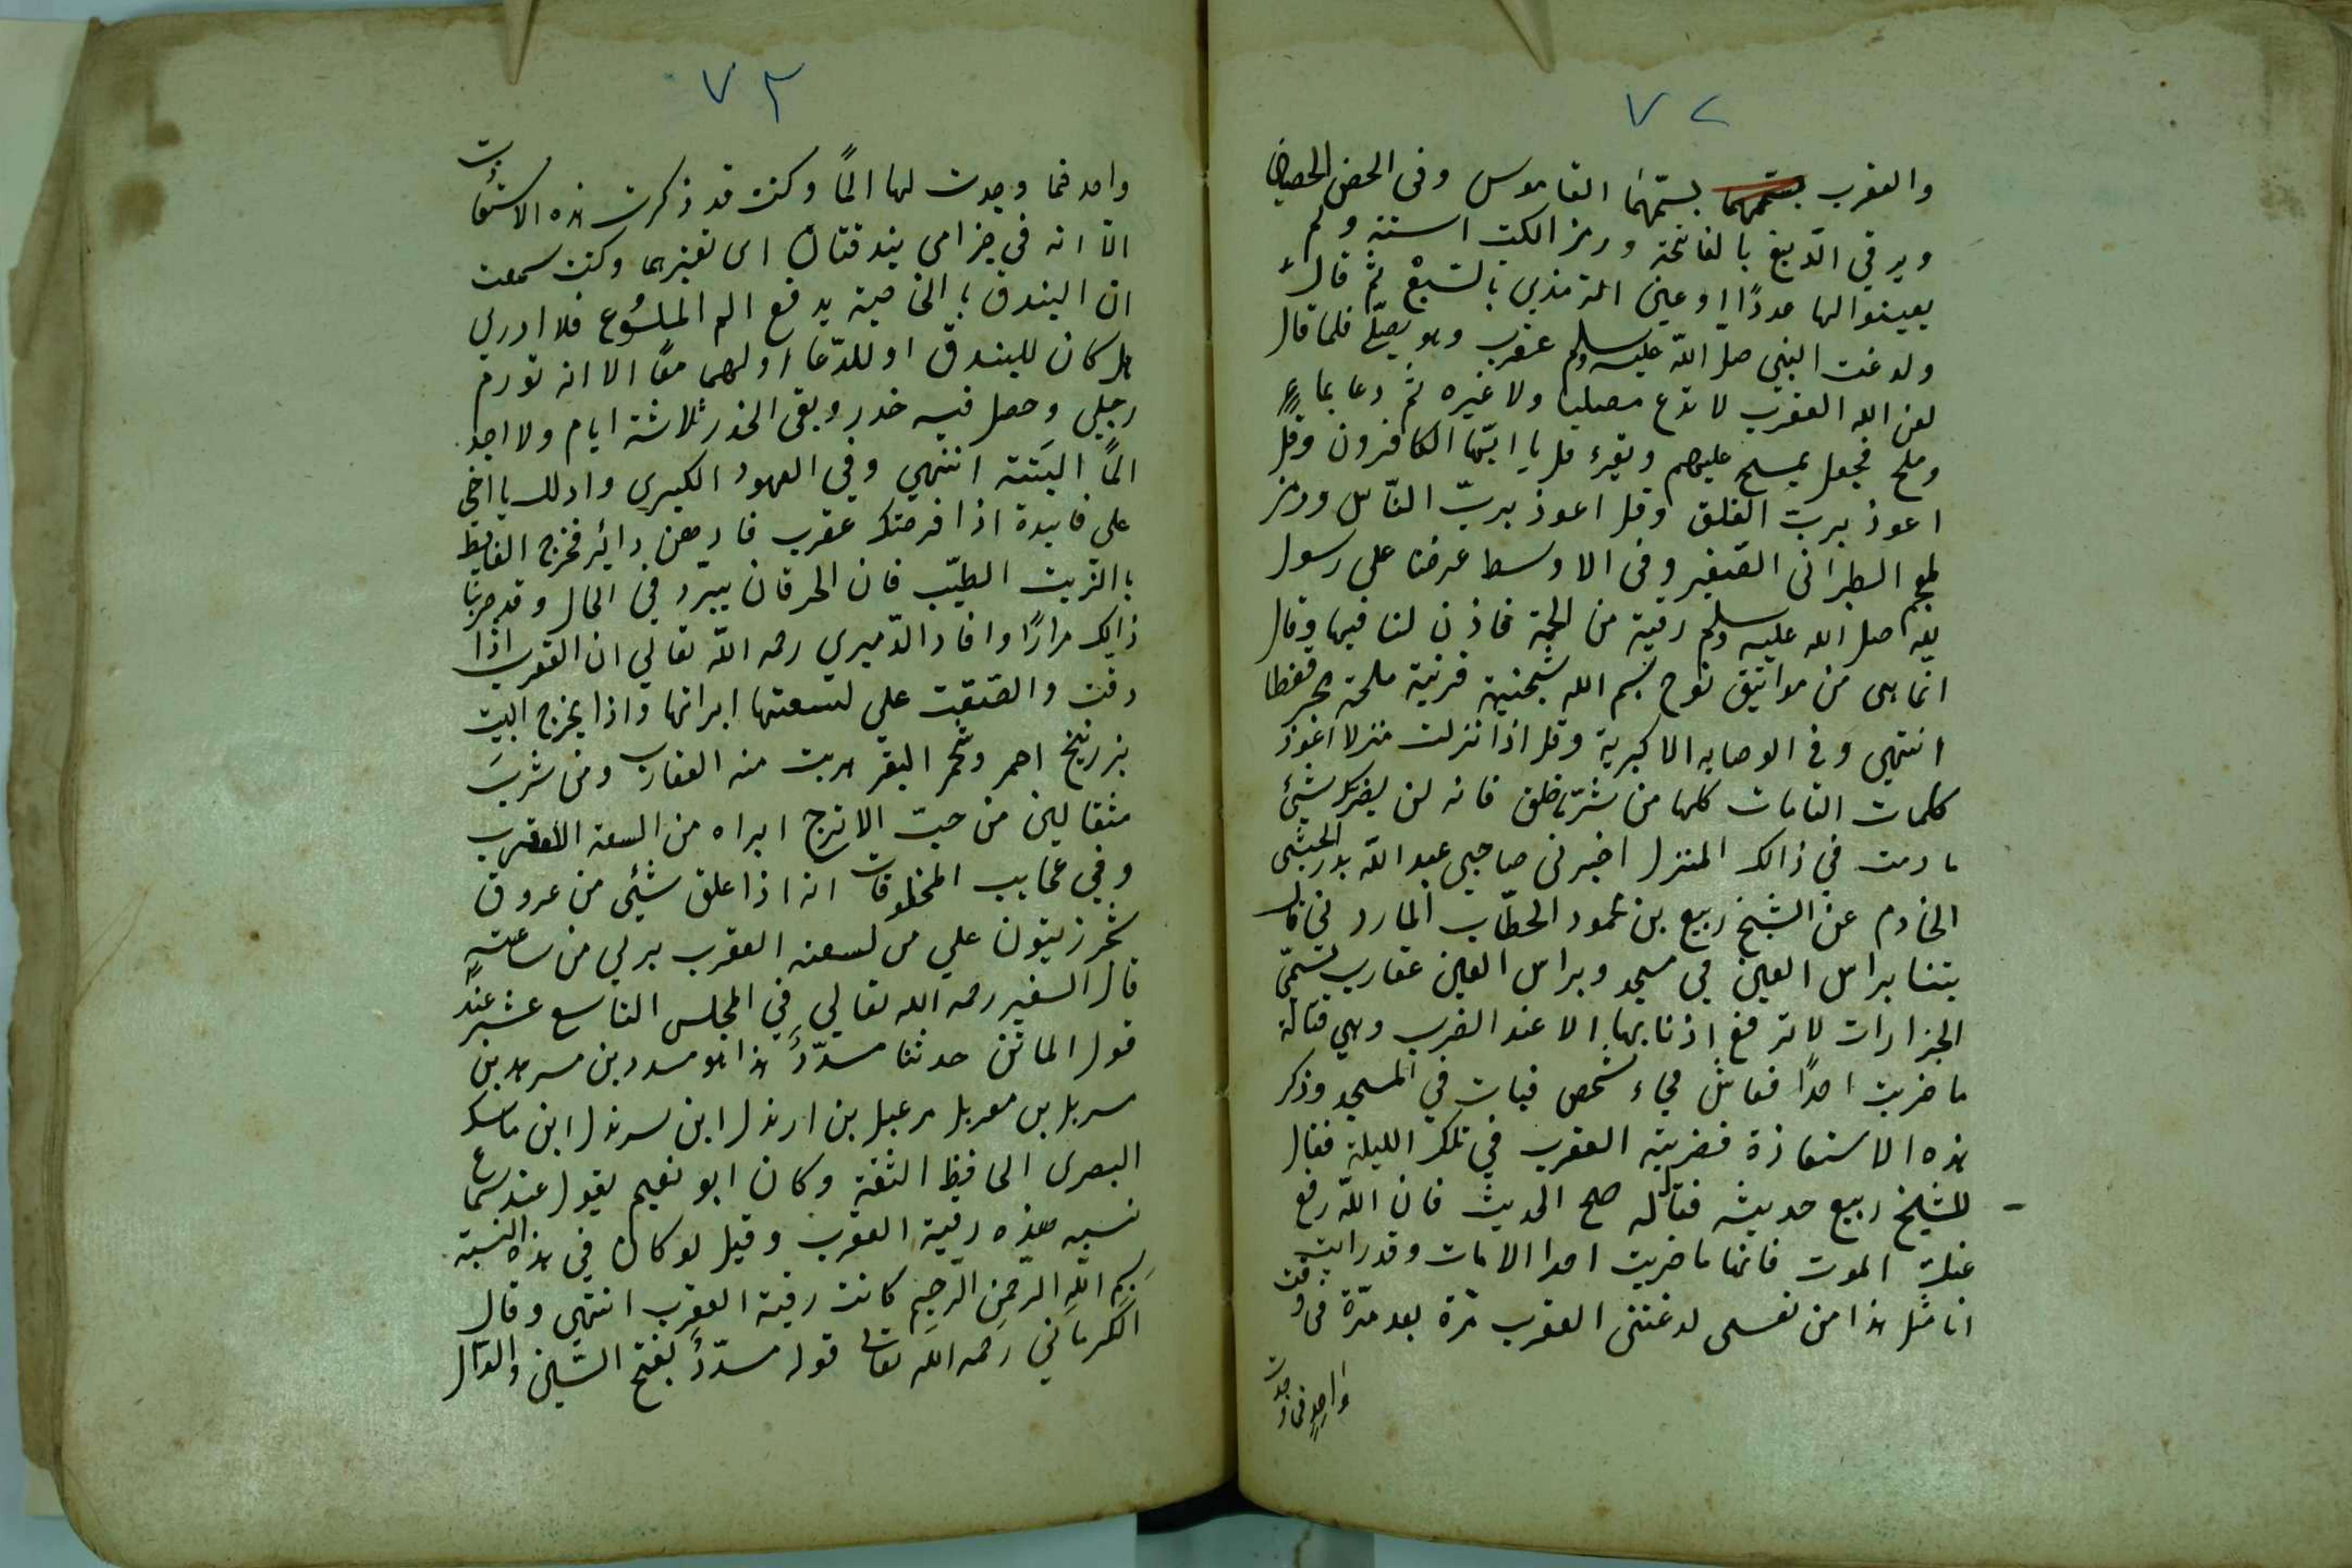 ٧٢
والعقرب بسمّهما القاموس وفى الحصن الحصين
ويرقي اللديغ بالفاتحة ورمز الكتب الستة ولم
يعينوا لها عددًا وعين الترمذي بالسّبع ثمّ قال
ولدغت النبي صلى اللّه عليه وسلم عقرب وهو يصلّي فلما قال
لعن الله العقرب لا تدع مصليا ولا غيره ثمّ دعا بماءٍ
وملح فجعل يمسح عليهم ويقرء قل يا ايّها الكافرون وقل
اعوذ بربّ الفلق وقل اعوذ بربّ النّاس ورمز
لمعجم الطبرانى الصّغير وفى الاوسط عرضنا على رسول
الله صلى الله عليه وسلم رقية من الحمة فاذن لنا فيها وقال
انما هى من مواثيق نوح بسم الله شجنية قرنية ملحة بحر قفطا
انتهى وفى الوصايه الاكبرية وقل اذا نزلت منزلا اعوذ
كلمات التامات كلها من شرّ ما خلق فانه لن يضرك شيئ
ما دمت في ذالك المنزل اخبرنى صاحبى عبد اللّه بدر الحبشى
الخادم عن الشيخ ربيع بن محمود الحطّاب الماردينى قال
بتنا براس العين في مسجد وبراس العين عقارب تسمّى
الجرارات لا ترفع اذنابها الا عند الضرب وهي قتالة
ما ضربت احدًا فعاش فجاء شخص فبات في المسجد وذكر
هذه الاستعاذة فضربته العقرب في تلك الليلة فقال
للشيخ ربيع حديثه فقال له صح الحديث فان اللّه رفع
عنك الموت فانها ما ضربت احدا الا مات وقد رايت
انا مثل هذا من نفسى لدغتنى العقرب مرّة بعد مرّة فى وقت
واحد فما وجدت
٧٣
واحد فما وجدت لها المًا وكنت قد ذكرت هذه الاستعاذات
الّا انه في حزامى بندقتان اى تغيرها وكنت سمعت
ان البندق بالخاصية يدفع الم الملسُوع فلا ادري
هل كان للبندق او للدّعا او لهما معًا الا انه تورم
رجلي وحصل فيه خدر وبقى الخدر ثلاثة ايام ولا اجد
المًا البَتة انتهي وفي العهود الكبري وادلك يا اخى
على فايدة اذا قرصتك عقرب فادهن دائر مخرج الغايط
بالزيت الطيّب فان الحرقان يبرد في الحال وقد جربنا
ذالك مرارًا وافاد الدّميري رحمه اللّه تعالي ان العقرب اذا
دقت والصقت علي لسعتها ابراتها واذا بخر البيت
بزرنيخ احمر وشحم البقر هربت منه العقارب ومن شربَ
مثقالين من حبّ الاترج ابراه من السعة العقرب
وفي عجايب المخلوقات انه اذا علق شيئى من عروق
شجر زيتون علي من لسعته العقرب برئ من ساعته
قال السفير رحمه الله تعالي في المجلس التاسع عشر عند
قول الماتن حدثنا مسدّدٌ هذا هو مسدد بن مسرهد بن
مسربل بن مغربل مرعبل بن ارندل ابن سرندل ابن ماسك
البصرى الحافظ الثقة وكان ابو نعيم يقول عند سماع
نسبه هذه رقية العقرب وقيل لو كان في هذه النسبة
بِسم اللّه الرّحمن الرّحِيم كانت رقية العقرب انتهي وقال
الكرماني رحمه اللّه تعالى قوله مسدّدٌ بفتح السّين والدّال